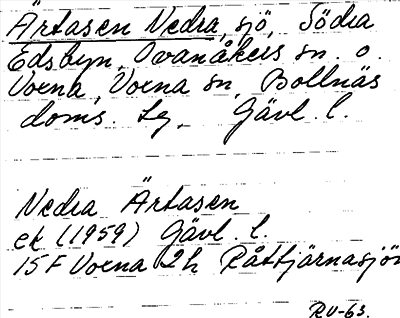 Ärtasen Nedra, sjö, Södra
Edsbyn, Ovanåkers sn o.
Voxna, Voxna sn, Bollnäs
doms. Lg, Gävl. l.
Nedra Ärtasen
ek (1959) Gävl. l.
15 F Voxna 2h Råttjärnasjön
RV-63.